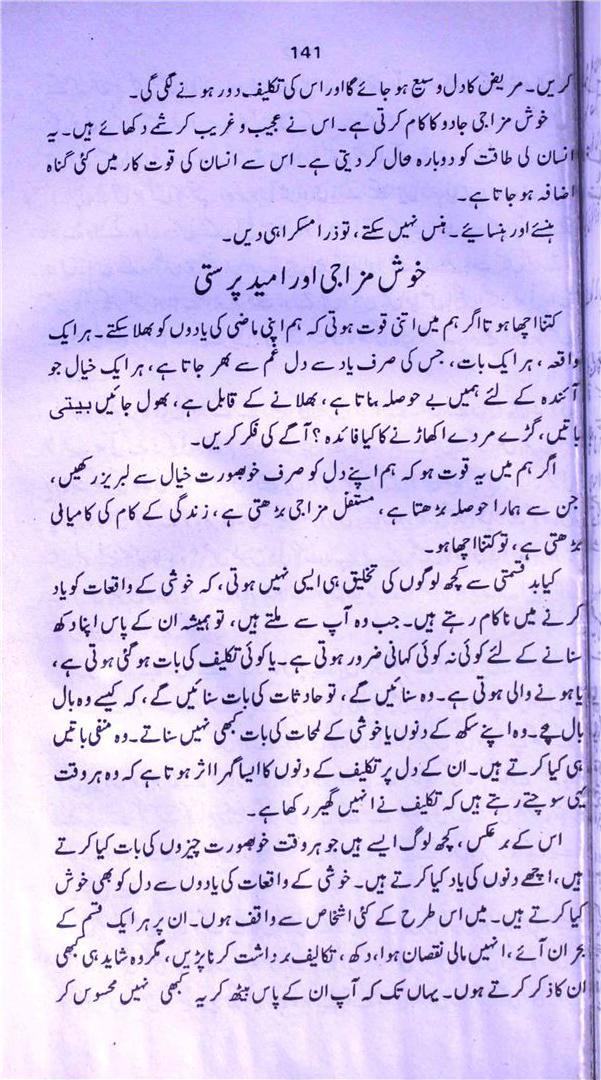 141
کریں۔ مریض کا دل وسیع ہو جائے گا اور اس کی تکلیف دور ہونے لگی گی۔
خوش مزاجی جادو کا کام کرتی ہے۔ اس نے عجیب و غریب کرشمے دکھائے ہیں۔ یہ
انسان لی طاقت کو دوبارہ حال کر دیتی ہے۔ اس سے انسان کی قوت کار میں کئی گناہ
اضافہ ہو جاتا ہے۔
ہنسئے اور ہنسائیے۔ ہنس نہیں سکتے، تو ذرا مسکرا ہی دیں۔
خوش مزاجی اور امید پرستی
کتنا اچھا ہوتا اگر ہم میں اتنی قوت ہوتی کہ ہم اپنی ماضی کی یادوں کو بھلا سکتے۔ ہر ایک
واقعہ، ہر ایک بات، جس کی صرف یاد سے دل غم سے بھر جاتا ہے، ہر ایک خیال جو
آئندہ کے لئے ہمیں بے حوصلہ بناتا ہے، بھلانے کے قابل ہے، بھول جائیں بیتی
باتیں، گڑے مردے اکھاڑنے کا کیا فائدہ؟ آگے کی فکر کریں۔
اگر ہم میں یہ قوت ہو کہ ہم اپنے دل کو صرف خوبصورت خیال سے لبریز رکھیں،
جن سے ہمارا حوصلہ بڑھتا ہے، مستقل مزاجی بڑھتی ہے، زندگی کے کام کی کامیابی
بڑھتی ہے، تو کتنا اچھا ہو۔
کیا بد قسمتی سے کچھ لوگوں کی تخلیق ہی ایسی نہیں ہوتی، کہ خوشی کے واقعات کو یاد
کرنے میں ناکام رہتے ہیں۔ جب وہ آپ سے ملتے ہیں، تو ہمیشہ ان کے پاس اپنا دکھ
سنانے کے لئے کوئی نہ کوئی کہانی ضرور ہوتی ہے۔ یا کوئی تکلیف کی بات ہو گئی ہوتی ہے،
یا ہونے والی ہوتی ہے۔ وہ سنائیں گے، تو حادثات کی بات سنائیں گے، کہ کیسے وہ بال
بال بچے۔ وہ اپنے سکھ کے دنوں یا خوشی کے لمحات کی بات کبھی نہیں سناتے۔ وہ منفی باتیں
ہی کیا کرتے ہیں۔ ان کے دل پر تکلیف کے دنوں کا ایسا گہرا اثر ہوتا ہے کہ وہ ہر وقت
یہی سوچتے رہتے ہیں کہ تکلیف نے انہیں گھیر رکھا ہے۔
اس کے بر عکس، کچھ لوگ ایسے ہیں جو ہر وقت خوبصورت چیزوں کی بات کیا کرتے
ہیں، اچھے دنوں کی یاد کیا کرتے ہیں۔ خوشی کے واقعات کی یادوں سے دل کو بھی خوش
کیا کرتے ہیں۔ میں اس طرح کے کئی اشخاص سے واقف ہوں۔ ان پر ہر ایک قسم کے
بحران آئے، انہیں مالی نقصان ہوا، دکھ، تکالیف برداشت کرنا پڑیں، مگر وہ شاید ہی کبھی
ان کا ذکر کرتے ہوں۔ یہاں تک کہ آپ ان کے پاس بیٹھ کر یہ کبھی نہیں محسوس کر